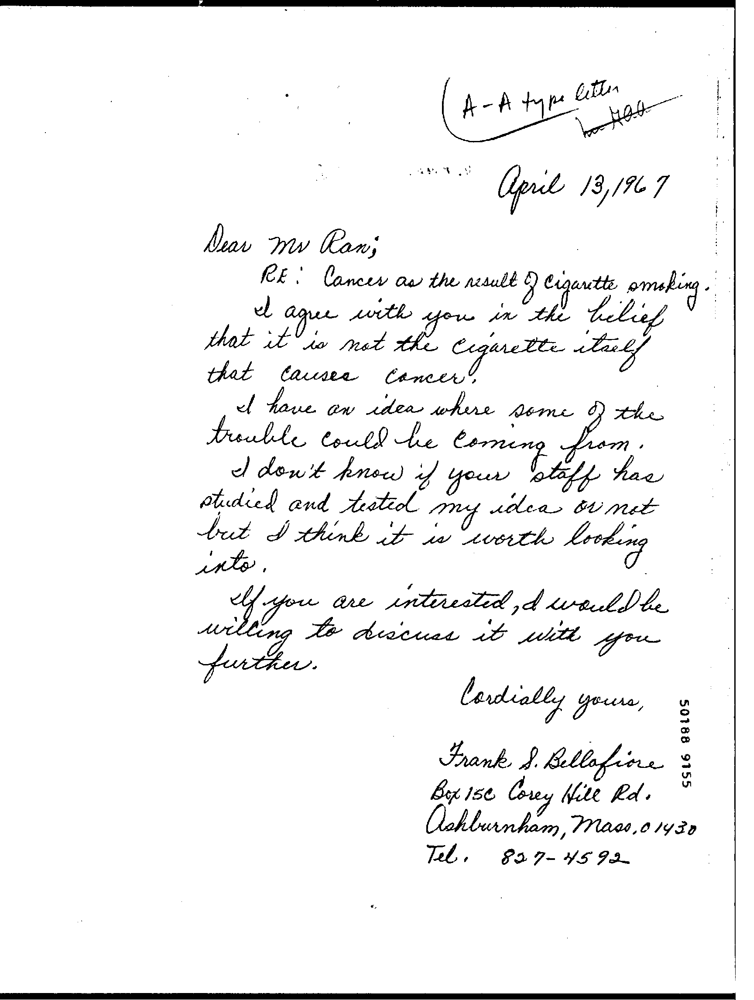 A-A type letter
April 13, 1967
Dear Mr Ran;
RE: Cancer as the result of cigarette smoking.
I agree with you in the belief
that it is not the cigarette itself
that causes cancer.
I have an idea where some of the
trouble could be coming from.
I don't know if your staff has
studied and tested my idea or not
but I think it is worth looking
into.
If you are interested, I would be
willing to discuss it with you
further.
Cordially yours,
Frank S. Bellafiore
Box 15C Corey Hill Rd.
Ashburnham, Mass. 01430
Tel. 827-4592
50188 9155